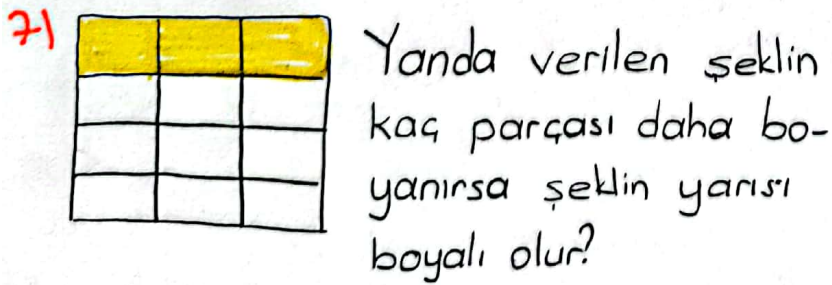 7)
Yanda verilen şeklin
kaç parçası daha bo-
yanırsa şeklin yarısı
boyalı olur?